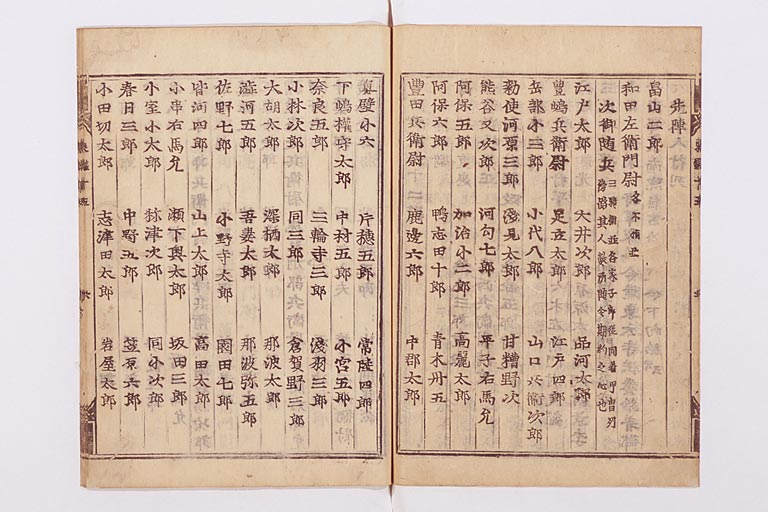 先陣
畠山二郎
和田左衛門尉 各不相並
次御随兵 三騎相並各家子郎従同着甲冑列
路傍其人数所随令期約之心也
江戸太郎 大井次郎 品河太郎
豊嶋兵衛尉 足立太郎 江戸四郎
岳部小三郎 小代八郎 山口兵衛次郎
勅使河原三郎 浅見太郎 甘糟野次
熊谷又次郎 河勾七郎 平子右馬允
阿保五郎 加治小二郎 高麗太郎
阿保六郎 鴨志田十郎 青木丹五
豊田兵衛尉 鹿邊六郎 中郡太郎
真壁小六 片穂五郎 常陸四郎
下嶋權守太郎 中村五郎 小宮五郎
奈良五郎 三輪寺三郎 浅羽三郎
小林次郎 同三郎 倉賀野三郎
大胡太郎 深栖太郎 那波太郎
澁河五郎 吾妻太郎 那波弥五郎
佐野七郎 小野寺太郎 園田七郎
皆河四郎 山上太郎 高田太郎
小串右馬允 瀬下奥太郎 坂田三郎
小室小太郎 祢津次郎 同小次郎
春日三郎 中野五郎 笠原六郎
小田切太郎 志津田太郎 岩屋太郎
東鑑十五